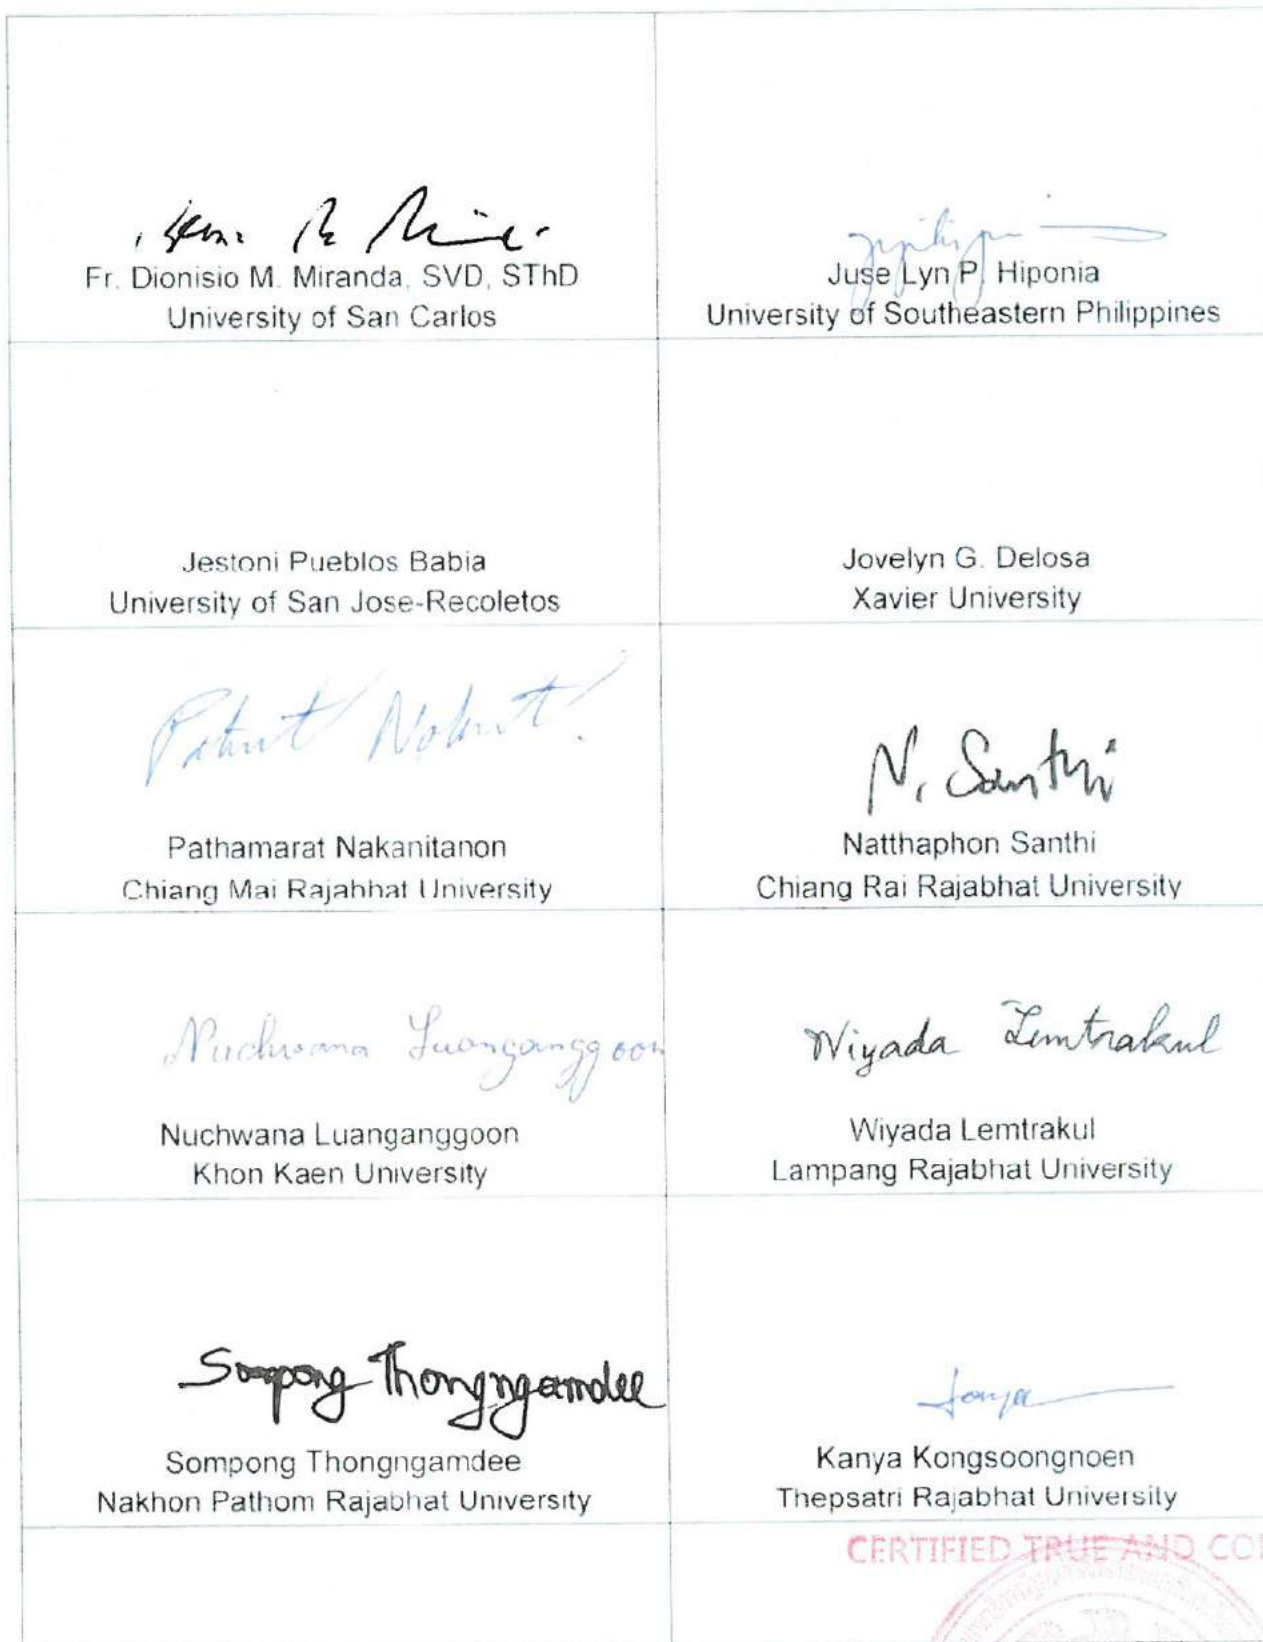 Fr. Dionisio M. Miranda, SVD, SThD
University of San Carlos
Juse Lyn P. Hiponia
University of Southeastern Philippines
Jestoni Pueblos Babia
University of San Jose-Recoletos
Jovelyn G. Delosa
Xavier University
Pathamarat Nakanitanon
Chiang Mai Rajabhat University
N. Santhi
Natthaphon Santhi
Chiang Rai Rajabhat University
Nuchwana Luanganggoon
Nuchwana Luanganggoon
Khon Kaen University
Wiyada Lemtrakul
Wiyada Lemtrakul
Lampang Rajabhat University
Sompong Thongngamdee
Sompong Thongngamdee
Nakhon Pathom Rajabhat University
Kanya Kongsoongnoen
Thepsatri Rajabhat University
CERTIFIED TRUE AND